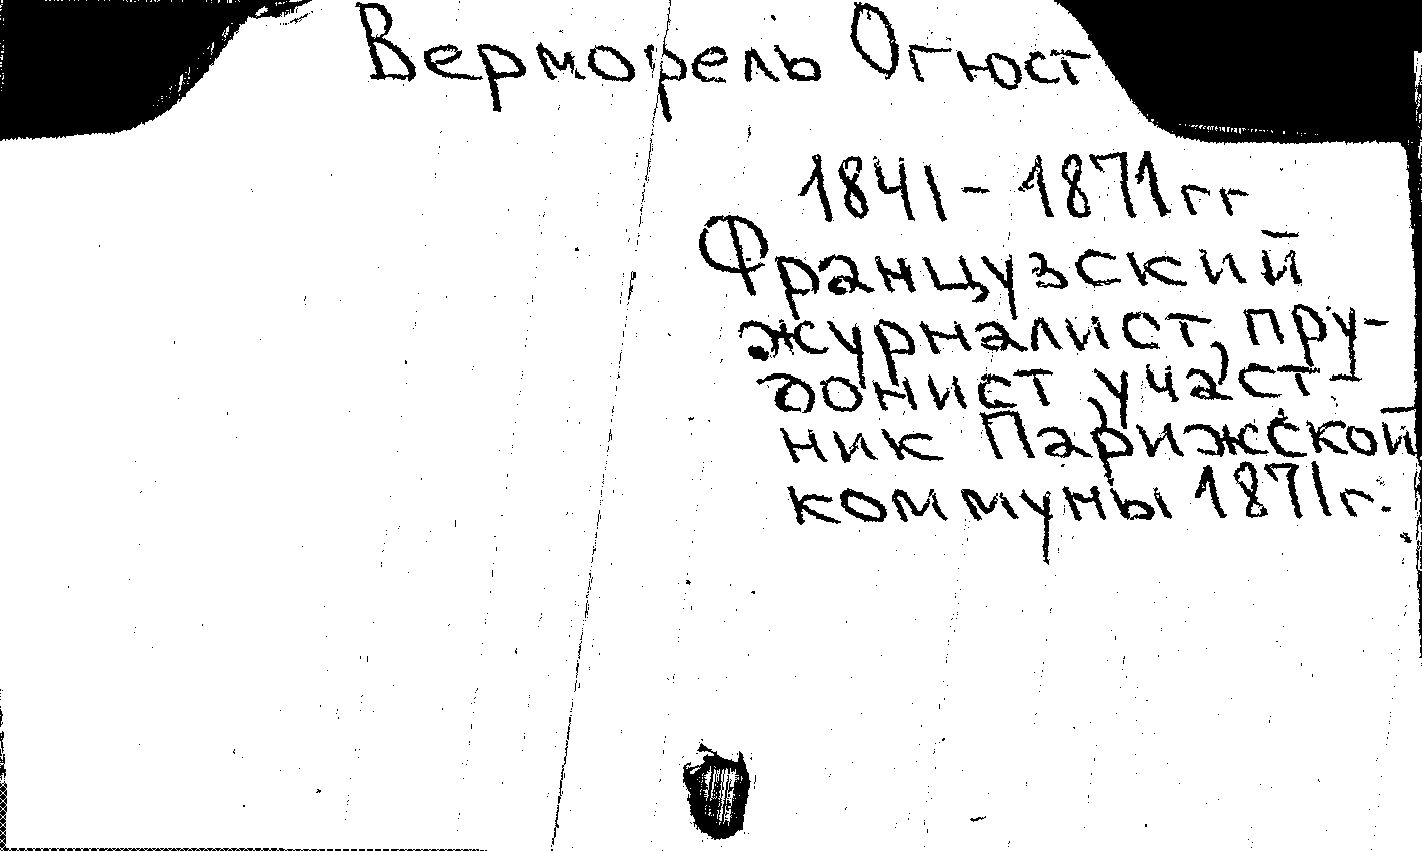 Верморель Огюст
1841-1871гг
Французский
журналист, пру-
донист, участ-
ник Парижской
коммуны 1871г.